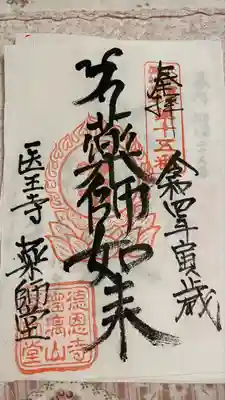 奉拝
第十五番
令和四年寅歳
薬師如来
医王寺 薬師堂
徳恩寺
高山
堂